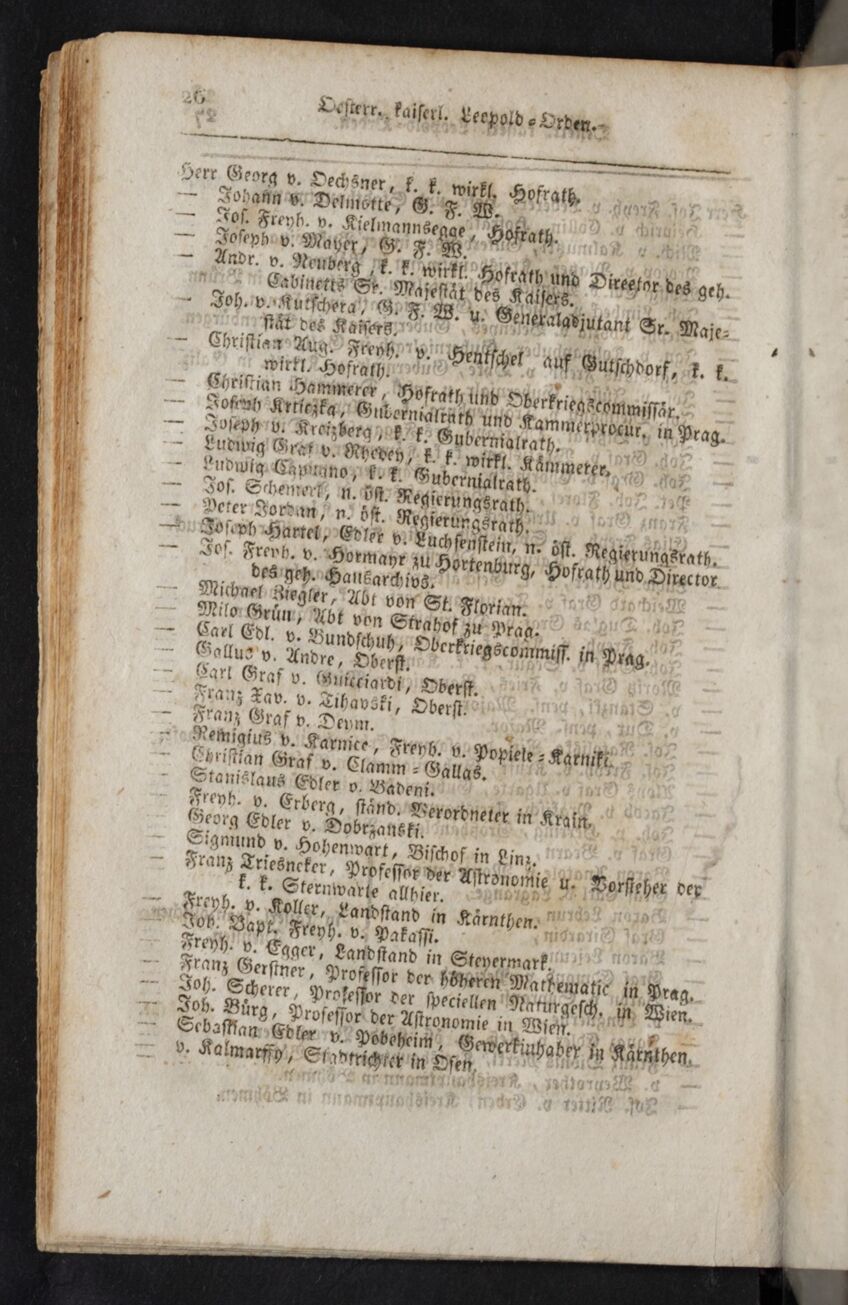 26
Oesterr. kaiserl. Leopold-Orden.
Herr Georg v. Oechsner, k. k. wirkl. Hofrath.
— Johann v. Delmotte, G. F. W.
— Jos. Freyh. v. Kielmannsegge, Hofrath.
— Joseph v. Mayer, G. F. W.
— Andr. v. Neuberg, k. k. wirkl. Hofrath und Director des geh.
Cabinetts Sr. Majestät des Kaisers.
— Joh. v. Kutschera, G. F. W. u. Generaladjutant Sr. Maje-
stät des Kaisers.
— Christian Aug. Freyh. v. Hentschel auf Gutschdorf, k. k.
wirkl. Hofrath.
— Christian Hammerer, Hofrath und Oberkriegscommissär.
— Joseph Krticzka, Gubernialrath und Kammerprocur. in Prag.
— Joseph v. Kreizberg, k. k. Gubernialrath.
— Ludwig Graf v. Rheden, k. k. wirkl. Kämmerer.
— Ludwig Capuano, k. k. Gubernialrath.
— Jos. Schemerl, n. öst. Regierungsrath.
— Peter Jordan, n. öst. Regierungsrath.
— Joseph Hartel, Edler v. Luchsenstein, n. öst. Regierungsrath.
— Jos. Freyh. v. Hormayr zu Hortenburg, Hofrath und Director
des geh. Hausarchivs.
— Michael Ziegler, Abt von St. Florian.
— Milo Grün, Abt von Strahof zu Prag.
— Carl Edl. v. Bundschuh, Oberkriegscommiss. in Prag.
— Gallus v. Andre, Oberst.
— Carl Graf v. Guicciardi, Oberst.
— Franz Xav. v. Tihavski, Oberst.
— Franz Graf v. Deym.
— Remigius v. Karnice, Freyh. v. Popiele-Karniki.
— Christian Graf v. Clamm-Gallas.
— Stanislaus Edler v. Badeni.
— Freyh. v. Erberg, ständ. Verordneter in Krain.
— Georg Edler v. Dobrzanski.
— Sigmund v. Hohenwart, Bischof in Linz.
— Franz Triesneker, Professor der Astronomie u. Vorsteher der
k. k. Sternwarte allhier.
— Freyh. v. Koller, Landstand in Kärnthen.
— Joh. Bapt. Freyh. v. Pakassi.
— Freyh. v. Egger, Landstand in Steyermark.
— Franz Gerstner, Professor der höheren Mathematic in Prag.
— Joh. Scherer, Professor der speciellen Naturgesch. in Wien.
— Joh. Bürg, Professor der Astronomie in Wien.
— Sebastian Edler v. Pobeheim, Gewerkinhaber in Kärnthen.
— v. Kalmarffy, Stadtrichter in Ofen.